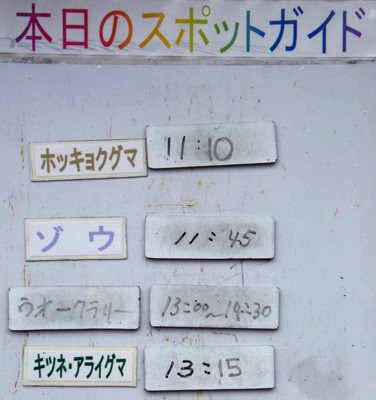 本日のスポットガイド
ホッキョクグマ 11:10
ゾウ 11:45
ウオークラリー 13:00~14:30
キツネ・アライグマ 13:15